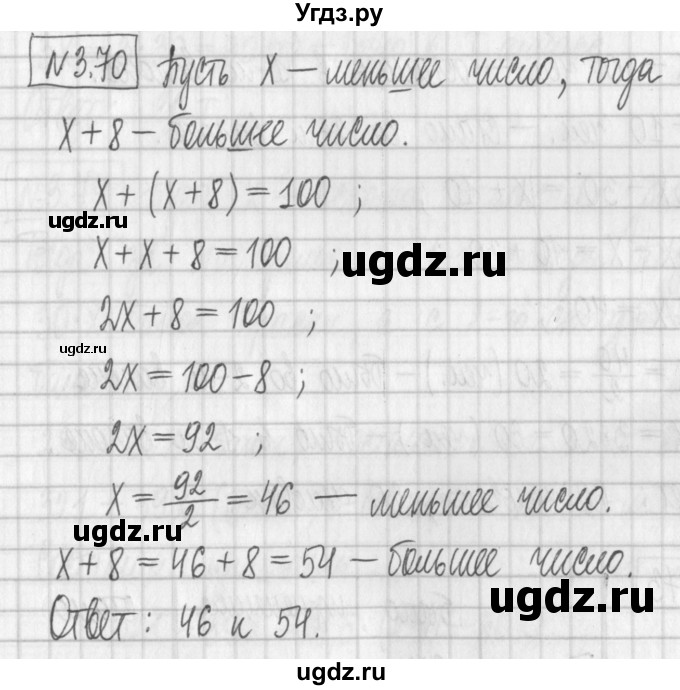 Угдз.ру
№3.70 Пусть x – меньшее число, тогда
x+8 – большее число.
x+(x+8)=100 ;
ugdz.ru
x+x+8=100 ;
ugdz.ru
2x+8=100 ;
ugdz.ru
2x=100-8 ;
2x=92 ;
x=92/2=46 — меньшее число.
ugdz.ru
x+8=46+8=54 – большее число.
ugdz.ru
Ответ: 46 и 54.
ugdz.ru